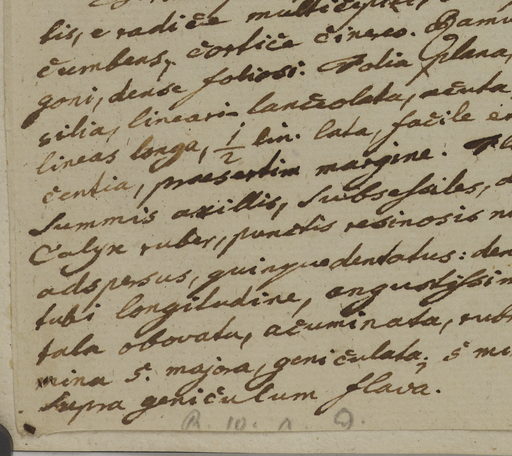 tis, e radice multicipiti,
cumbens, cortice cinereo. Ramu
goni, dense foliosi. Folia plana,
silia, lineari-lanceolata, acuta,
lineas longa, 1/2 lin. lata, facile
centia, praesertim margine.
Summis axillis, subsessiles,
Calyx ruber, punctis resinosis
adspersus, quinquedentatus: den
tubi longitudine, angustissim
tala obovata, acuminata, rub
mina 5. majora, geniculata; 5 mi
supra geniculum flava.